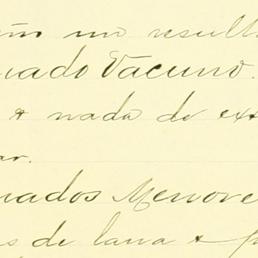 un result
nado Vacuno.
& nada de ex
ar.
nados Menore
s de lana &